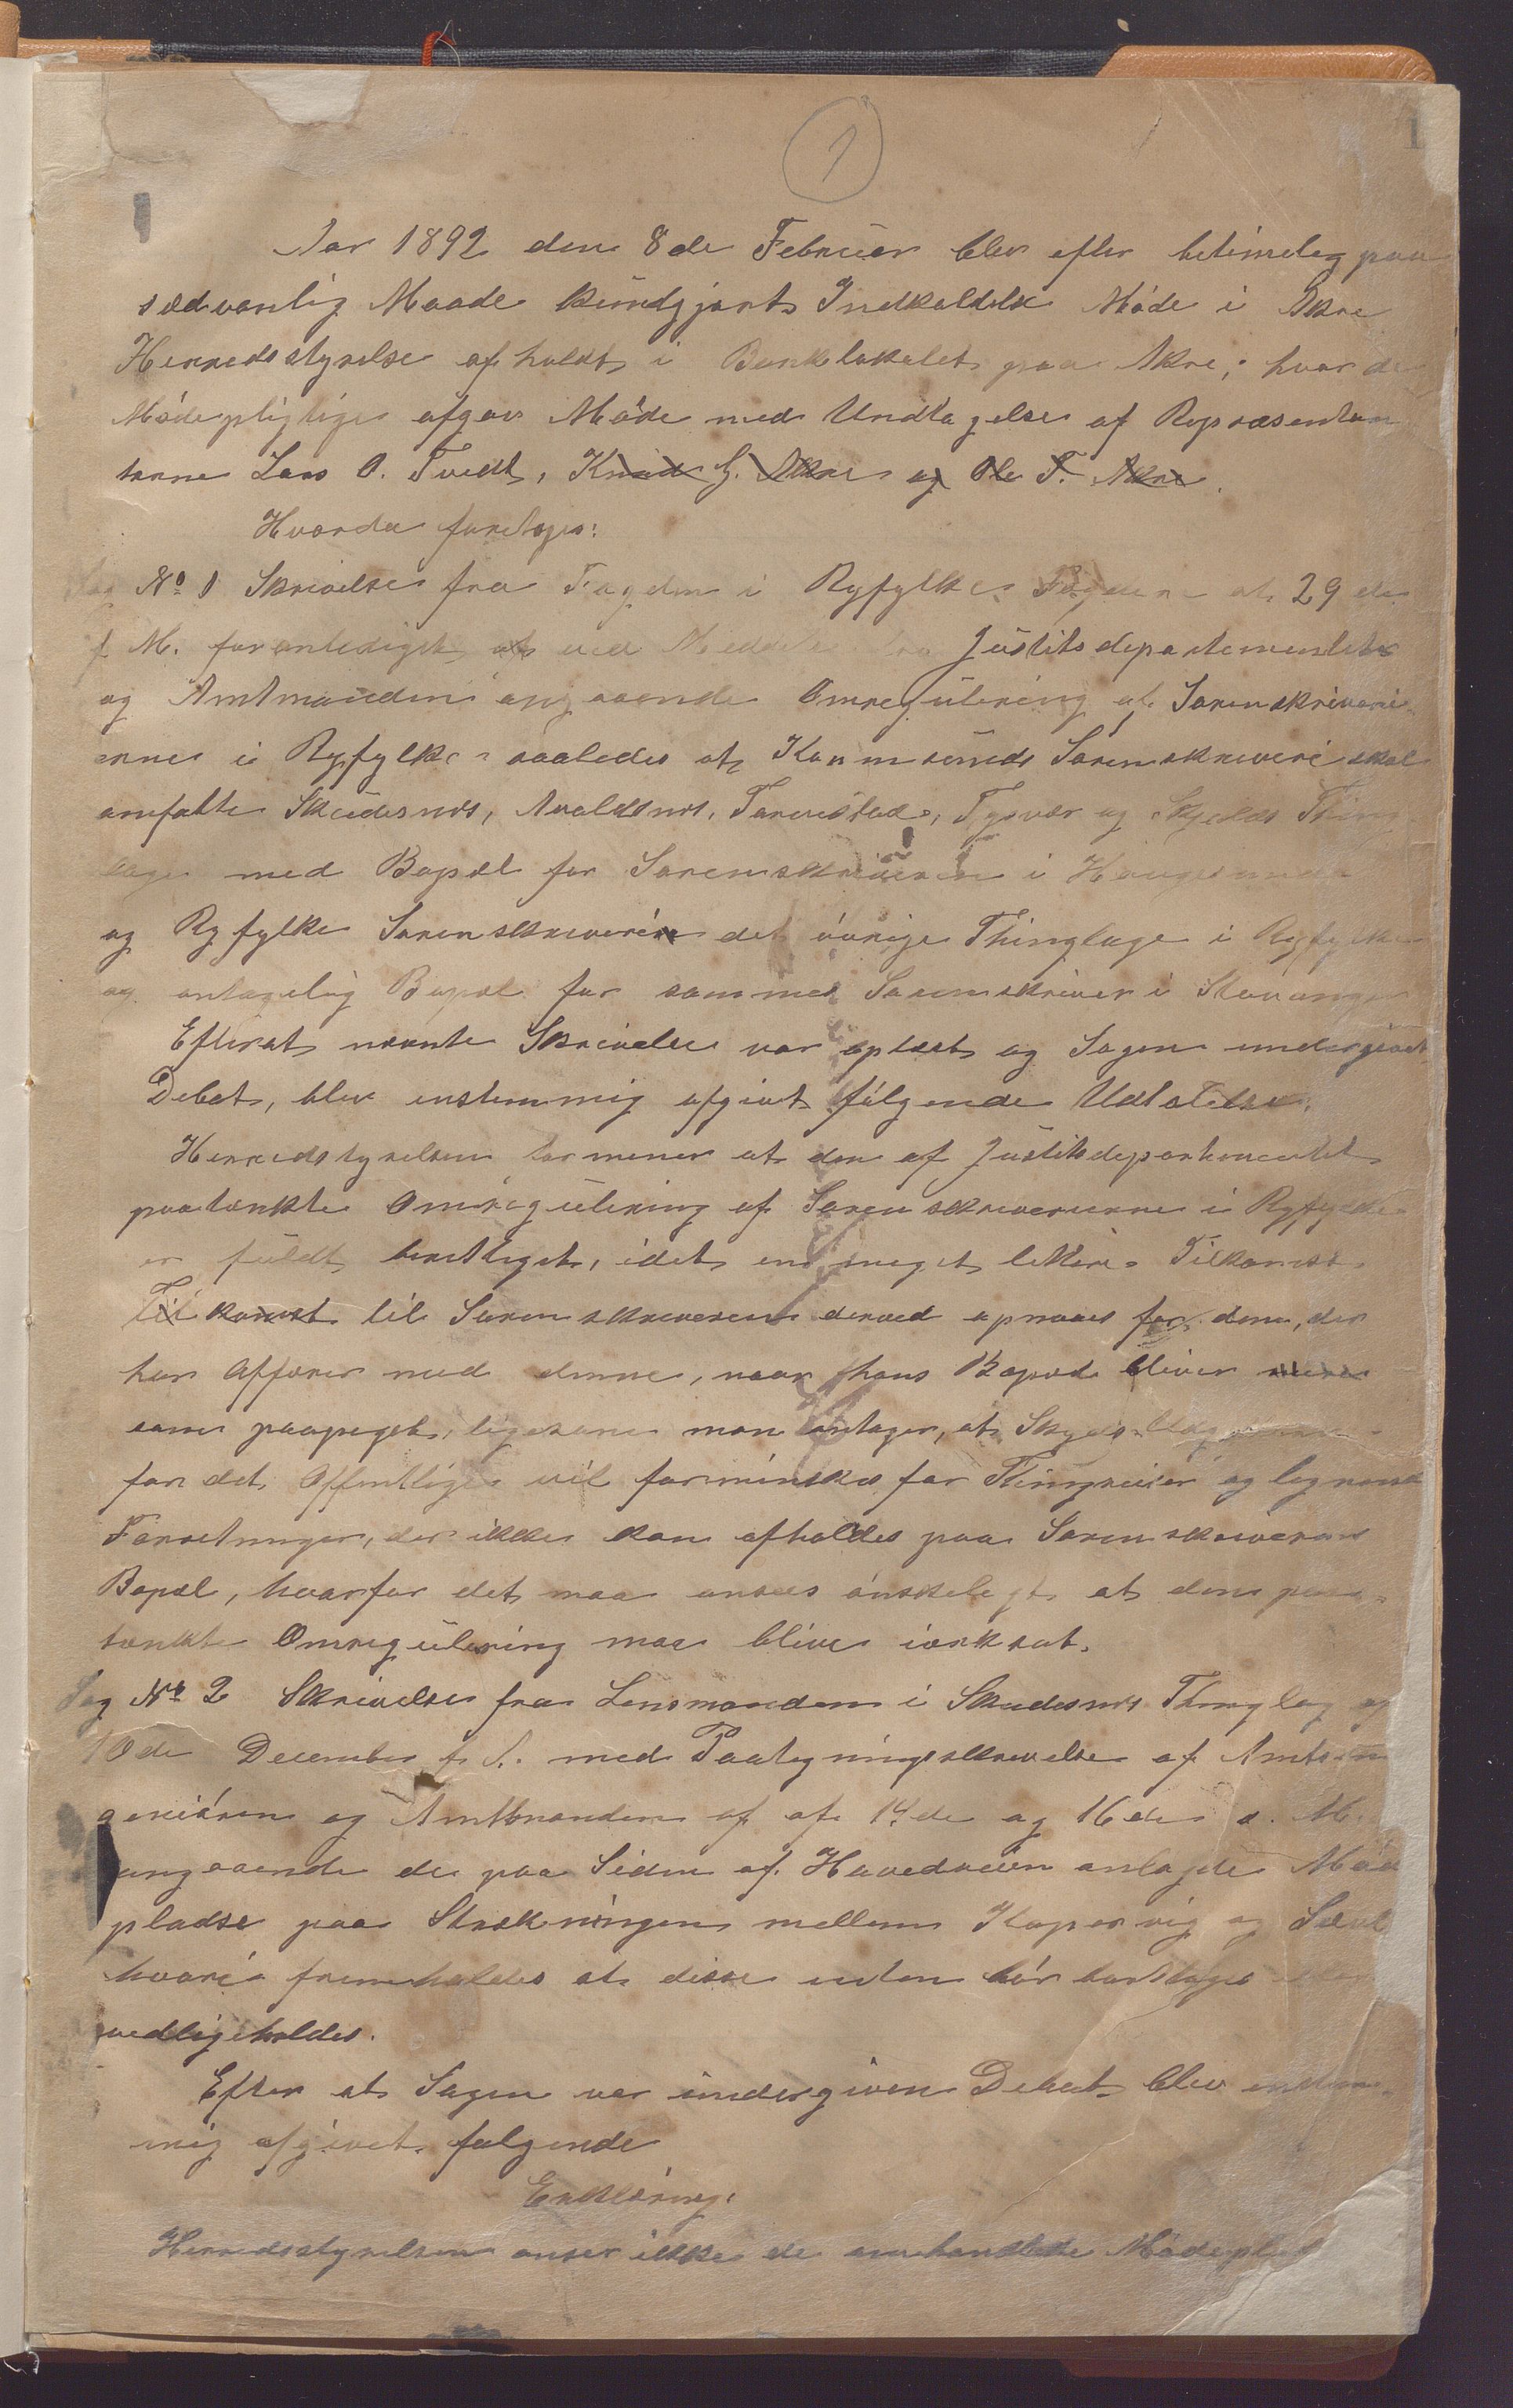 1
1
Aar 1892 den 8de Februar blev efter betimelig paa
sædvanlig Maade kundgjort Indkaldelse Møde i Akre
Herredsstyrelse afholdt i Banklokalet paa Akre, hvor de
Mødepligtige afgav Møde med Undtagelse af Repræsentan
terne Lars O. Tvedt, Knud G. Akre og Ole T. Akre.
Hvorda foretoges:
Sag No 1 Skrivelse fra Fogden i Ryfylke Fogderi at 29de
f. M. foranlediget at ved Meddelelse fra Justitsdepartementet
og Amtmanden angaaende Omregulering af Sorenskriveri
erne i Ryfylke saaledes at Karmsunds Sorenskriveri skal
omfatte Skudesnes, Avaldsnes, Torvestad, Tysvær og Skjolds Thing
lage med Bopæl for Sorenskriveren i Haugesund
og Ryfylke Sorenskriveri det øvrige Thinglage i Ryfylke
og antagelig Bopæl for sammes Sorenskriver i Stavanger
Efterat nævnte Skrivelse var oplæst og Sagen undergivet
Debat, blev enstemmig afgivet følgende Udtalelse.
Herredstyrelsen formener at den af Justitsdepartementet
paatænkte Omregulering af Sorenskriverierne i Ryfylke
er fuldt berettiget, idet en meget lettere Tilkomst
Tilkomst til Sorenskriveren derved opnaaes for dem, der
har Affærer med denne, naar hans Bopæl bliver
som paapeget, ligesom man antager, at Skyds
for det Offentlige vil forminskes for Thingreiser og lignende
Forretninger, der ikke kan afholdes paa Sorenskriverens
Bopæl, hvorfor det maa ansees ønskeligt at den paa-
tænkte Omregulering maa blive iverksat.
Sag No 2 Skrivelse fra Lensmanden i Skudesnes Thinglag af
10de December f. A. med Paategningsskrivelse af Amtsin
geniøren og Amtmanden af af 14de og 16de s. M.
angaaende de paa Siden af Hovedveien anlagde Møde
pladse paa Strækningen mellem Kopervig og Sævl
hvori fremholdes at disse enten bør bortlages eller
vedligeholdes.
Efter at Sagen var undergiven Debat blev enstem-
mig afgivet følgende
Erklæring:
Herredsstyrelsen anser ikke de omhandlede Mødeplad